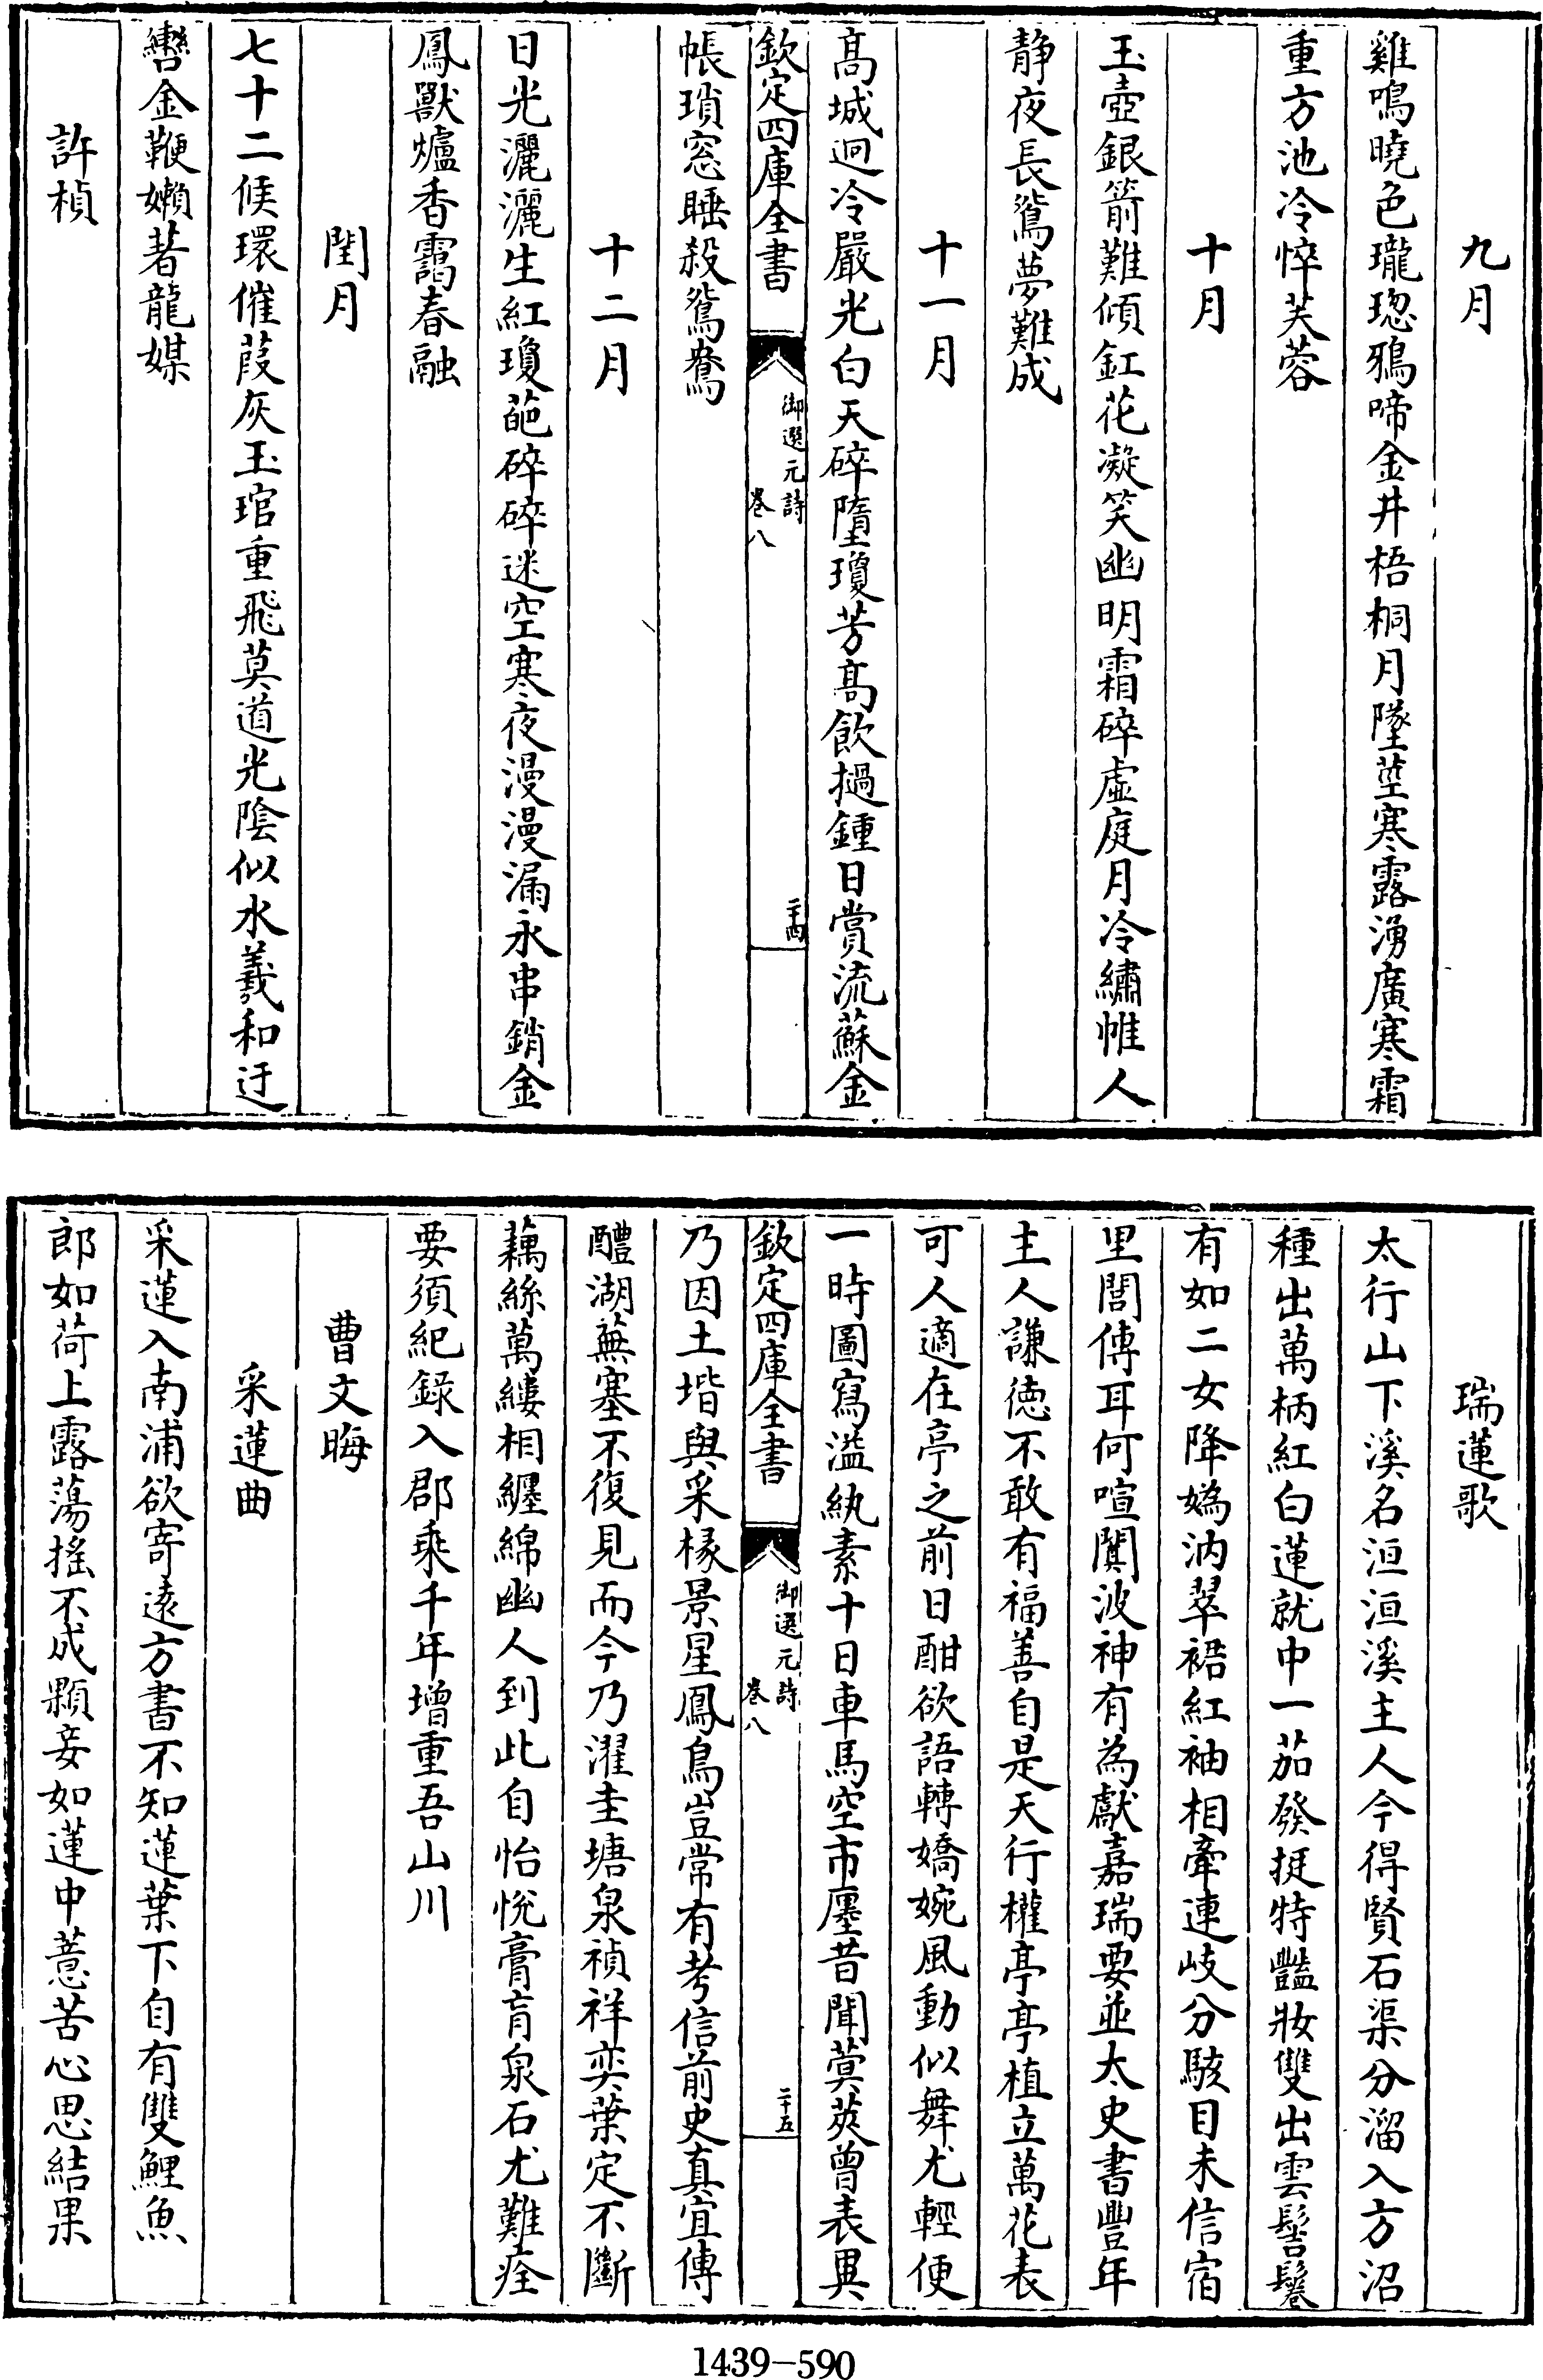 九月
雞鳴曉色瓏璁鴉啼金井梧桐月墜莖寒露湧廣寒霜
重方池冷悴芙蓉
十月
玉壺銀箭難傾釭花凝笑幽明霜碎虛庭月冷繡帷人
静夜長鴛夢難成
十一月
髙城迥冷嚴光白天碎墮瓊芳髙飲撾鍾日賞流蘇金
欽定四庫全書
御選元詩
卷八
二十四
帳瑣窓睡殺鴛鴦
十二月
日光灑灑生紅瓊葩碎碎迷空寒夜漫漫漏永串銷金
鳳獸爐香靄春融
閏月
七十二候環催葭灰玉琯重飛莫道光陰似水羲和迂
轡金鞭嬾著龍媒
許楨
瑞蓮歌
太行山下溪名洹洹溪主人今得賢石渠分溜入方沼
種出萬柄紅白蓮就中一茄發挺特豔妝雙出雲髻鬈
有如二女降媯汭翠裾紅袖相牽連岐分駭目未信宿
里閭傳耳何喧闐波神有為獻嘉瑞要並太史書豐年
主人謙徳不敢有福善自是天行權亭亭植立萬花表
可人適在亭之前日酣欲語轉嬌婉風動似舞尤輕便
一時圖寫溢紈素十日車馬空市廛昔聞蓂莢曾表異
欽定四庫全書
御選元詩
卷八
二十五
乃因土堦與采椽景星鳳鳥豈常有考信前史真宜傳
醴湖蕪塞不復見而今乃濯圭塘泉禎祥奕葉定不斷
藕絲萬縷相纒綿幽人到此自怡悅膏肓泉石尤難痊
要須紀錄入郡乘千年增重吾山川
曹文晦
采蓮曲
采蓮入南浦欲寄逺方書不知蓮葉下自有雙鯉魚
郎如荷上露蕩揺不成顆妾如蓮中薏苦心思結果
1439-590